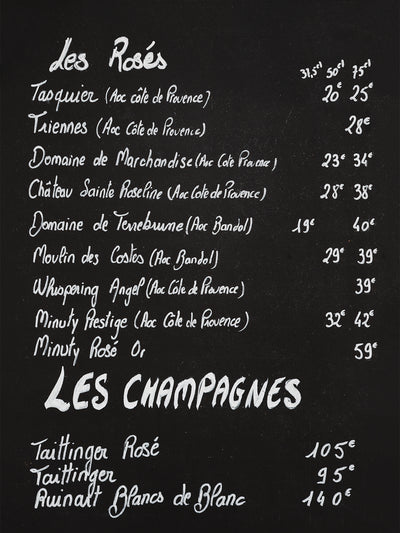 Les Rosés
37,5cl 50cl 75cl
Tasquier (Aoc côte de Provence) 20€ 25€
Triennes (Aoc Côte de Provence) 28€
Domaine de Marchandise (Aoc Cote Provence) 23€ 34€
Château Sainte Roseline (Aoc Cote de Provence) 28€ 38€
Domaine de Terrebrune (Aoc Bandol) 19€ 40€
Moulin des Costes (Aoc Bandol) 29€ 39€
Whispering Angel (Aoc Côte de Provence) 39€
Minuty Prestige (Aoc Côte de Provence) 32€ 42€
Minuty Rosé Or 59€
LES CHAMPAGNES
Taittinger Rosé 105€
Taittinger 95€
Ruinart Blancs de Blanc 140€